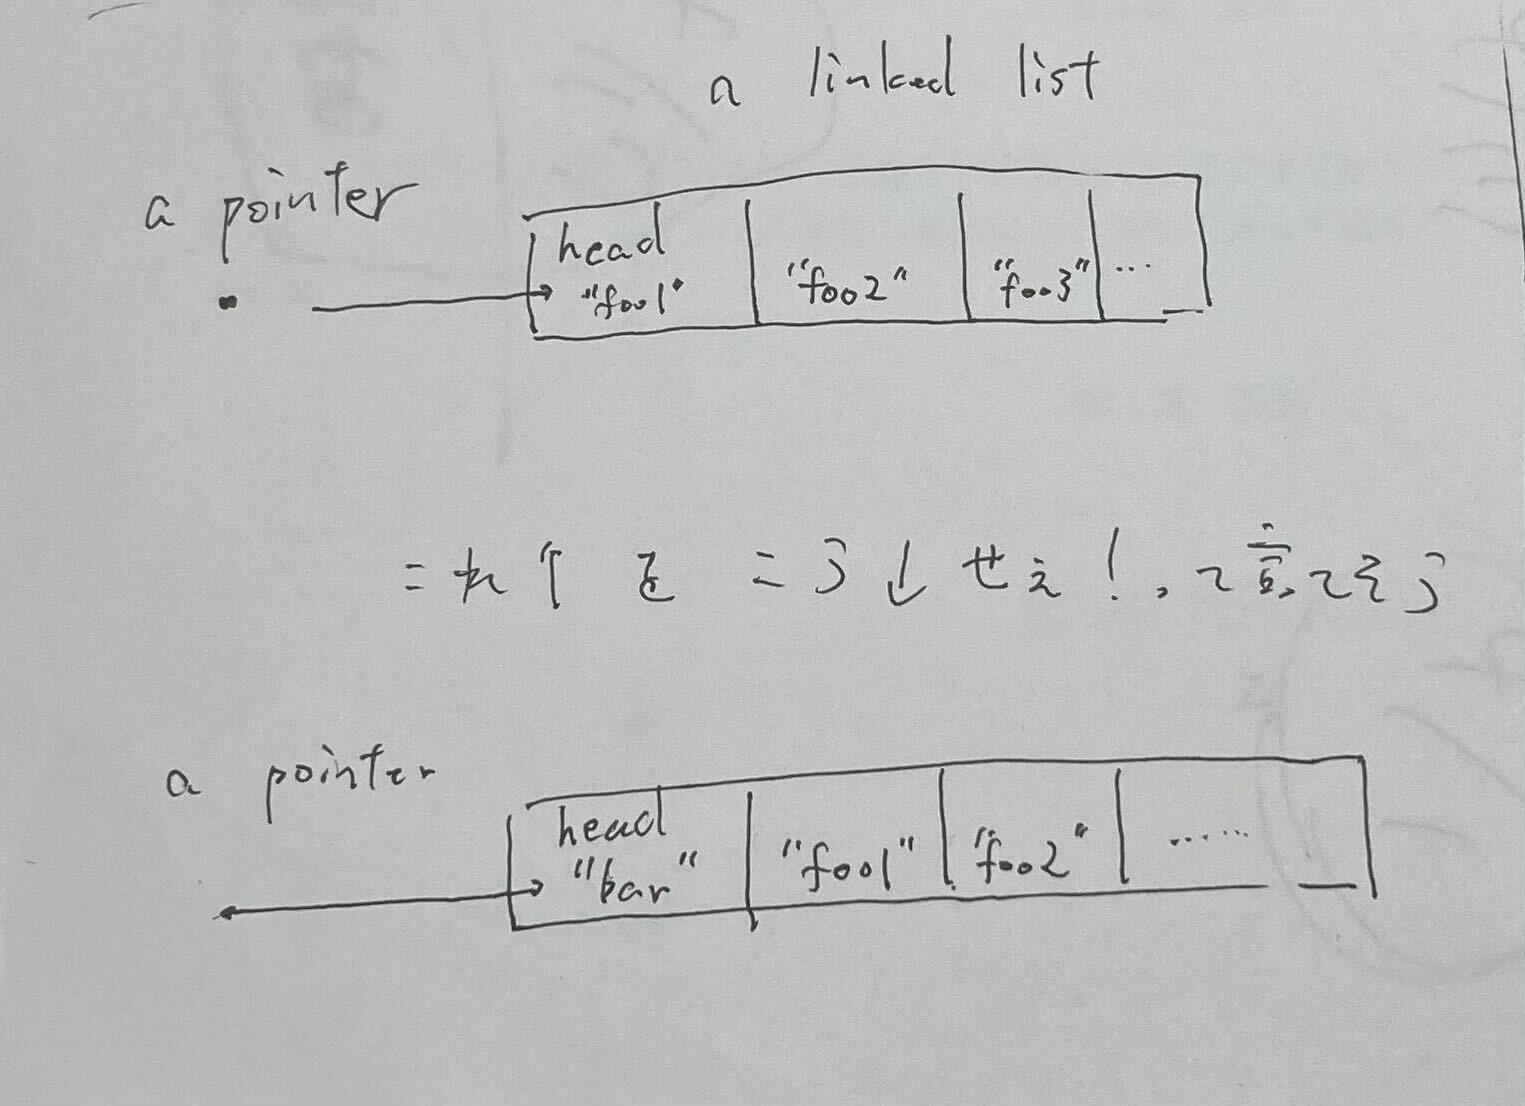 a linked list
a pointer
head
"foo1" "foo2" "foo3" ...
これ↑をこう↓せえ！，って言ってそう
a pointer
head
"bar" "foo1" "foo2" ......